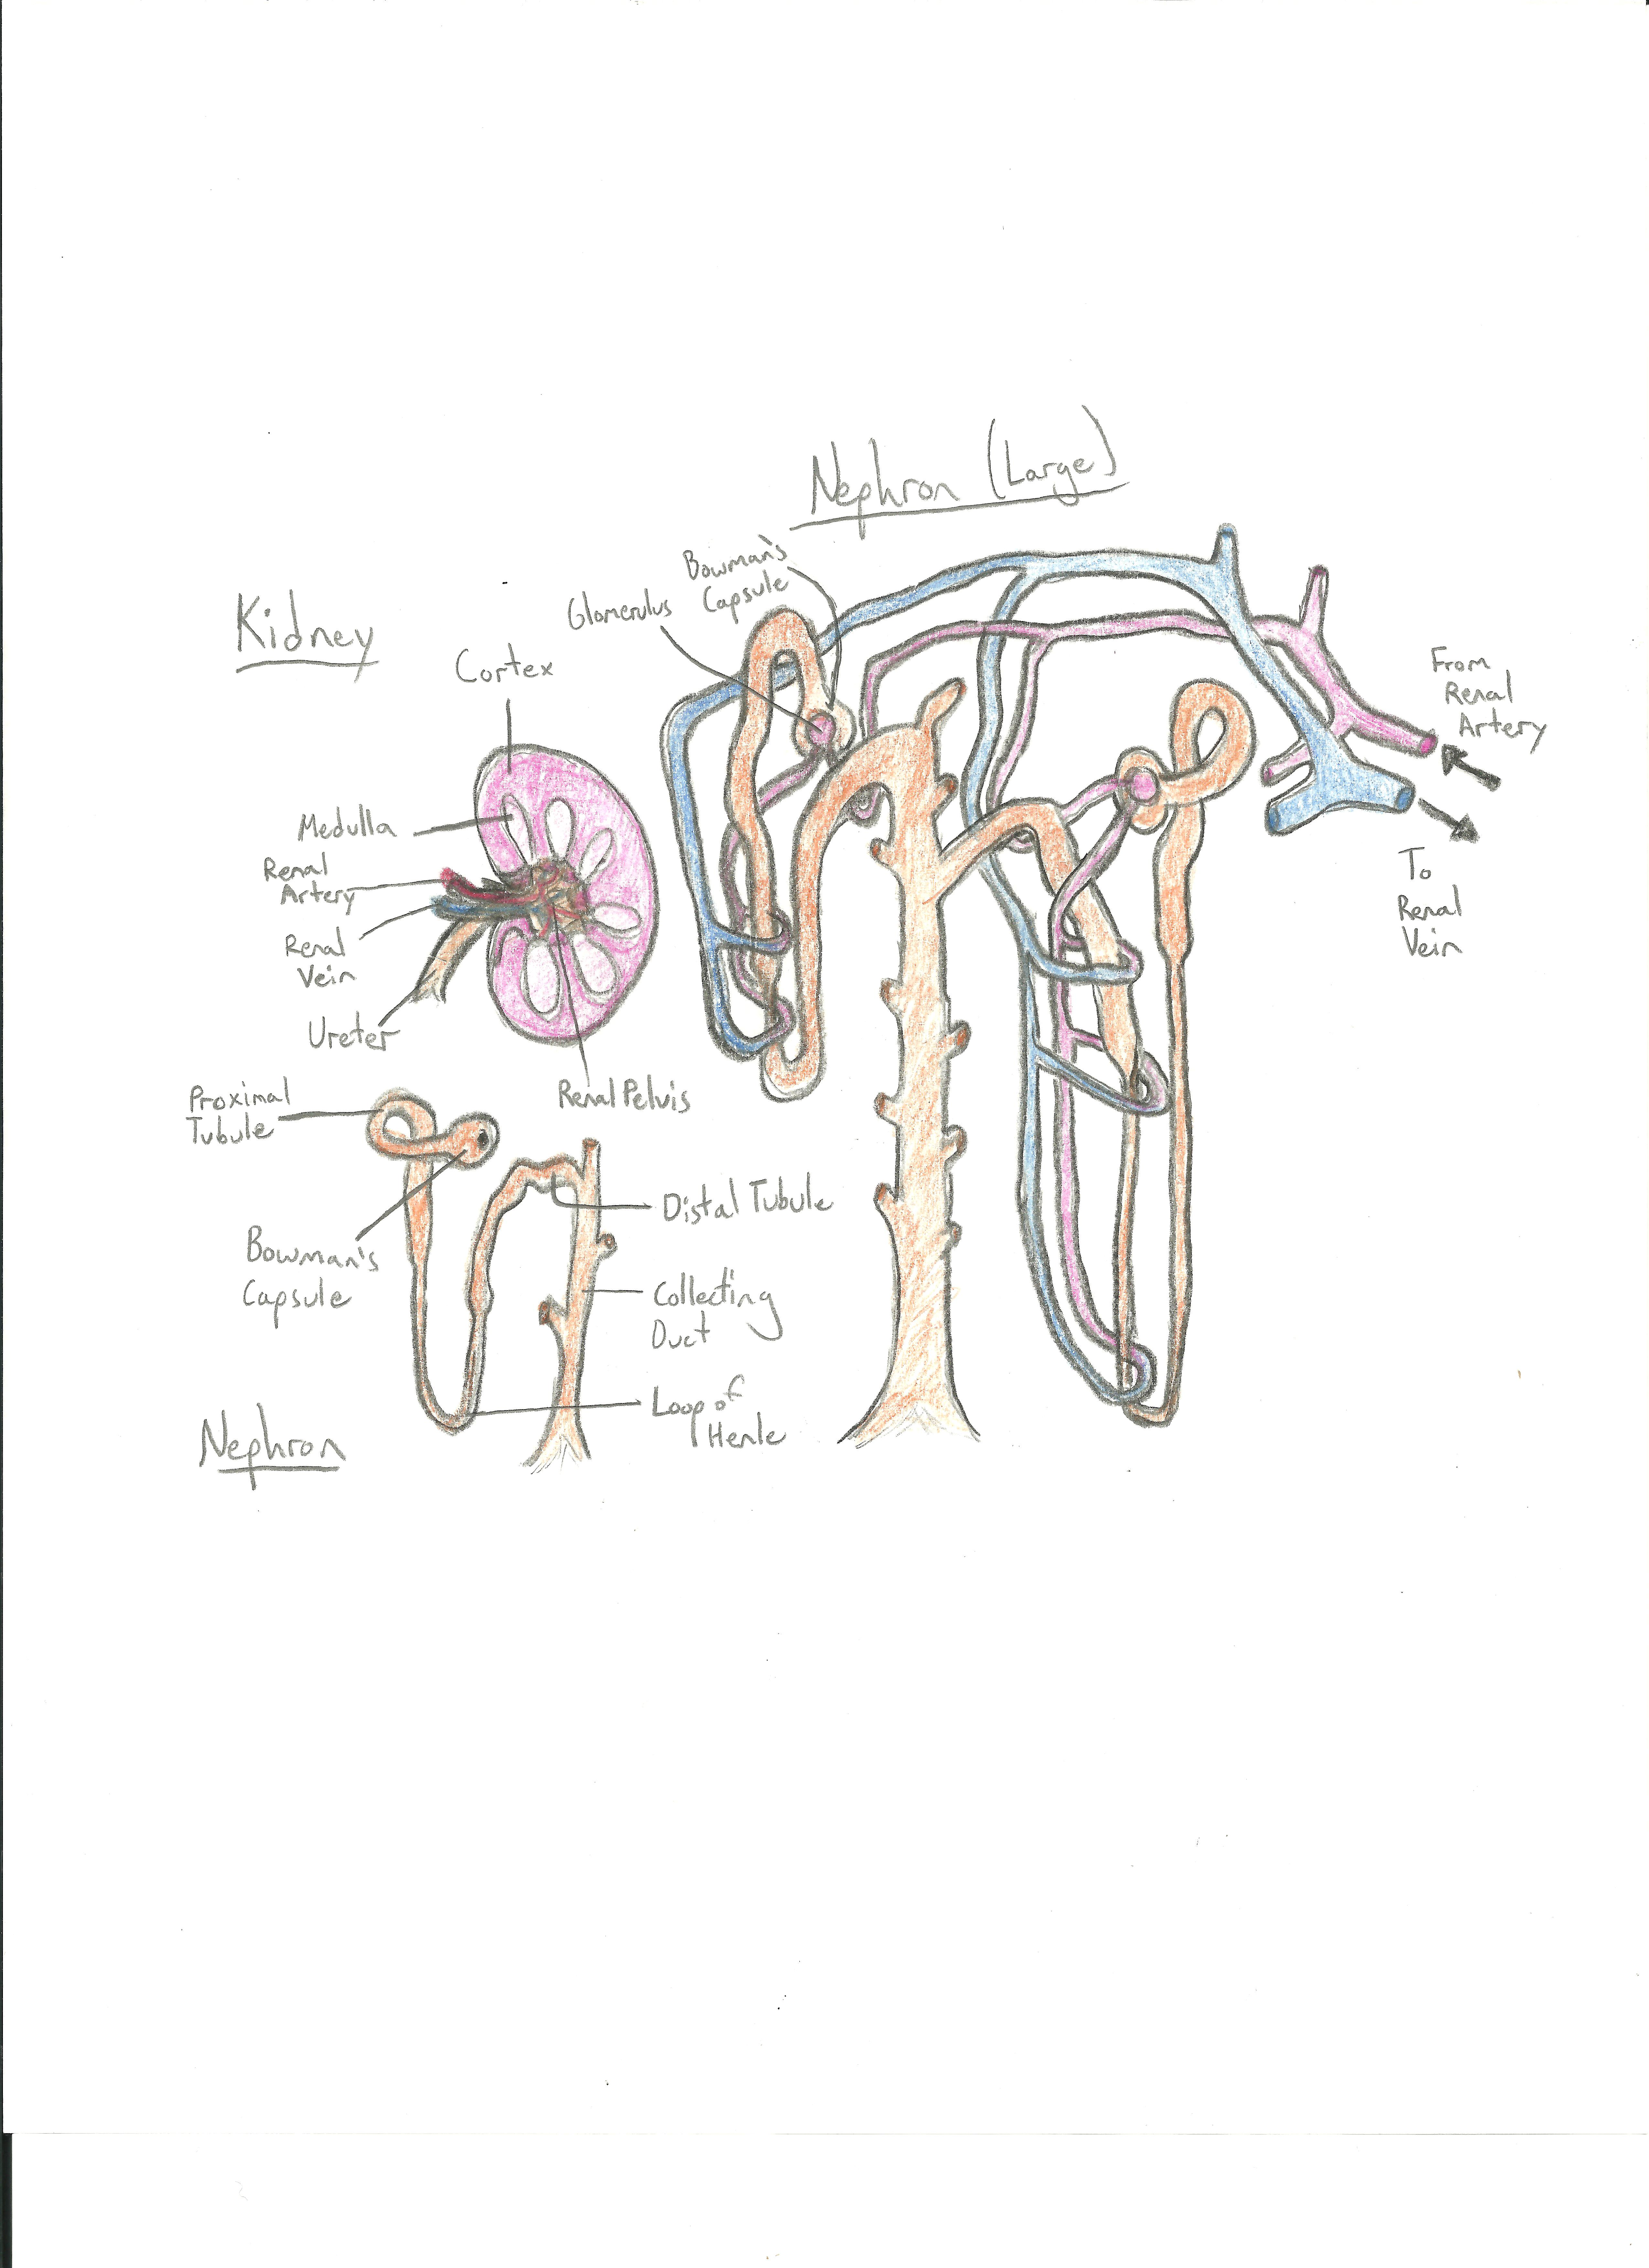 Nephron (Large)
Bowman's
Capsule
Glomerulus
Kidney
Cortex
Medulla
Renal
Artery
Renal
Vein
Ureter
Renal Pelvis
From
Renal
Artery
To
Renal
Vein
Proximal
Tubule
Bowman's
Capsule
Distal Tubule
Collecting
Duct
Loop of
Henle
Nephron